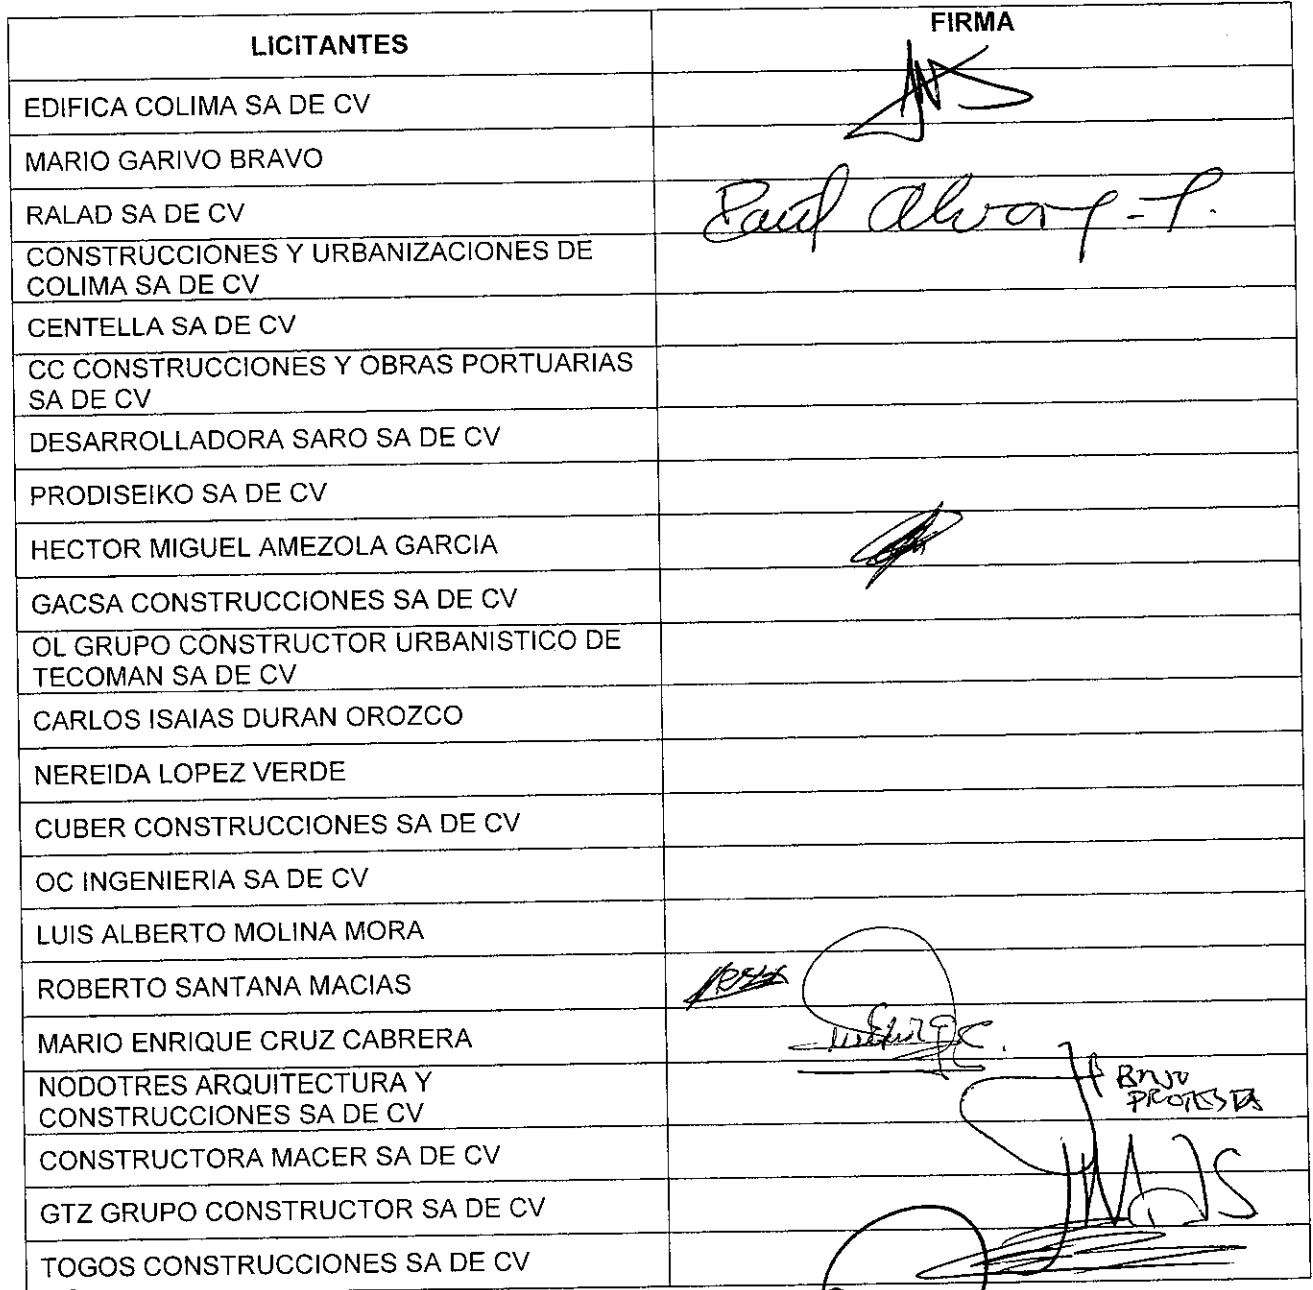 LICITANTES
FIRMA
EDIFICA COLIMA SA DE CV
MARIO GARIVO BRAVO
RALAD SA DE CV
CONSTRUCCIONES Y URBANIZACIONES DE
COLIMA SA DE CV
CENTELLA SA DE CV
CC CONSTRUCCIONES Y OBRAS PORTUARIAS
SA DE CV
DESARROLLADORA SARO SA DE CV
PRODISEIKO SA DE CV
HECTOR MIGUEL AMEZOLA GARCIA
GACSA CONSTRUCCIONES SA DE CV
OL GRUPO CONSTRUCTOR URBANISTICO DE
TECOMAN SA DE CV
CARLOS ISAIAS DURAN OROZCO
NEREIDA LOPEZ VERDE
CUBER CONSTRUCCIONES SA DE CV
OC INGENIERIA SA DE CV
LUIS ALBERTO MOLINA MORA
ROBERTO SANTANA MACIAS
MARIO ENRIQUE CRUZ CABRERA
NODOTRES ARQUITECTURA Y
CONSTRUCCIONES SA DE CV
BAJO
PROTESTA
CONSTRUCTORA MACER SA DE CV
GTZ GRUPO CONSTRUCTOR SA DE CV
TOGOS CONSTRUCCIONES SA DE CV